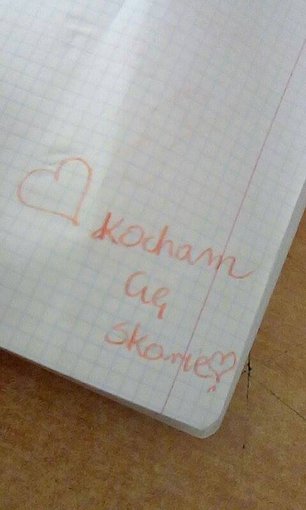 Kocham
Cię
Skarie